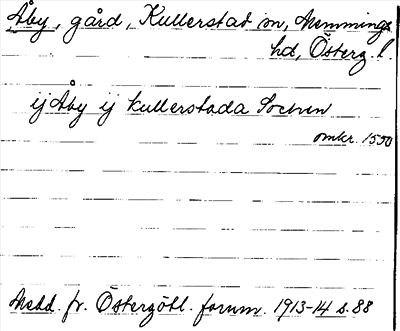 Åby, gård, Kullerstad sn, Memmings
hd, Österg. l.
ij Åby ij kullerstada Sochnn
omkr. 1550
Medd. fr. Östergötl. fornm. 1913-14 s. 88